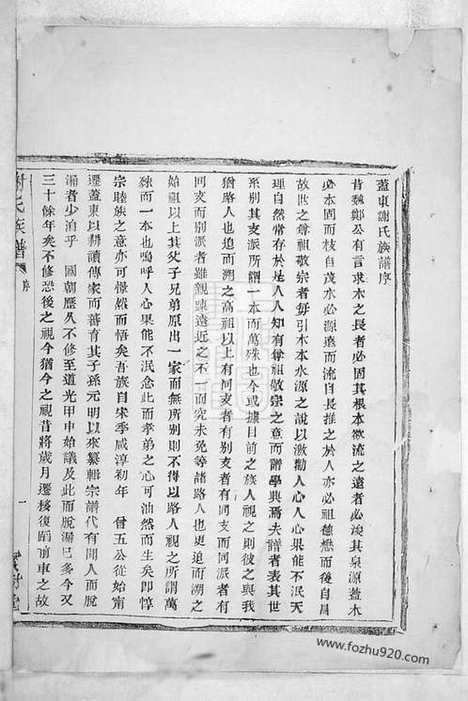 蓋東謝氏族譜序
昔魏鄭公有言求木之長者必固其根本欲流之遠者必浚其泉源蓋木
必本固而枝自茂水必源遠而流自長推之於人亦必祖德懋而後自昌
故世之尊祖敬宗者每引木本水源之說以激勸人心人心果能不泯天
理自然常存於是人人知有尊祖敬宗之意而譜學興焉夫譜者表其世
系別其支派所謂一本而萬殊也今或據目前之族人視之則彼之與我
猶路人也追而溯之高祖以上有何支者有別支者有同支而同派者有
同支而別派者雖親疎遠近之不一而究未免等諸路人也更追而溯之
始祖以上其父子兄弟原出一家而無所別則不得以路人視之所謂萬
殊而一本也嗚呼人心果能不泯念此而孝弟之心可油然而生矣即惇
宗睦族之意亦可恍而悟矣吾族自宋季咸淳初年 曾五公從始甯
遷蓋東以耕讀傳家而蕃育其子孫元明以來纂輯宗譜代有聞人而脫
漏者少泊乎 國朝歷久不修至道光甲申始議及此而脫漏已多今又
三十餘年矣不修恐後之視今猶今之視昔將歲月遷移復蹈前車之故
謝氏族譜 序 一
www.fozhu920.com